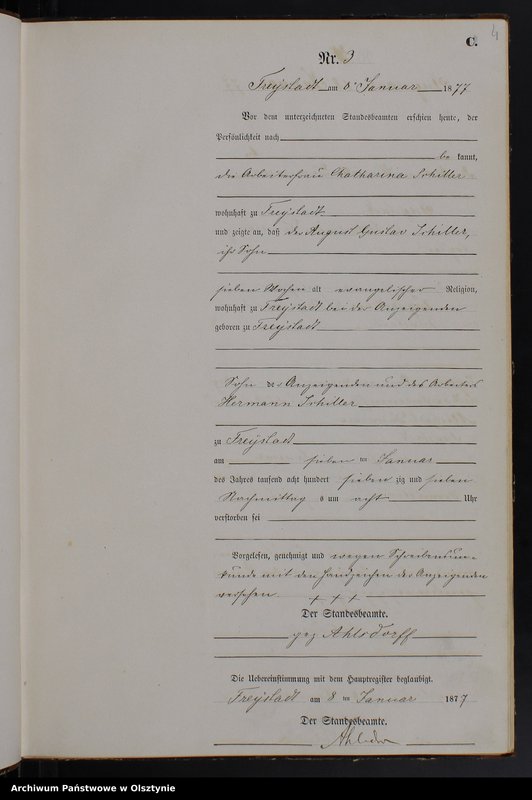 4
C.
Nr. 3
Freystadt am 8. Januar 1877
Vor dem unterzeichneten Standesbeamten erschien heute, der
Persönlichkeit nach
be kannt,
die Arbeiterfrau Chatharina Schiller
wohnhaft zu Freystadt
und zeigte an, daß der August Gustav Schiller,
ihr Sohn
sieben Wochen alt evangelischer Religion,
wohnhaft zu Freystadt bei der Anzeigenden
geboren zu Freystadt
Sohn der Anzeigenden und des Arbeiters
Hermann Schiller
zu Freystadt
am sieben ten Januar
des Jahres tausend acht hundert sieben zig und sieben
Nachmittags um acht Uhr
verstorben sei
Vorgelesen, genehmigt und wegen Schreibensun-
kunde mit den Handzeichen der Anzeigenden
versehen. + + +
Der Standesbeamte.
gez Ahlsdorff
Die Uebereinstimmung mit dem Hauptregister beglaubigt.
Freystadt am 8 ten Januar 1877
Der Standesbeamte.
Archiwum Państwowe w Olsztynie